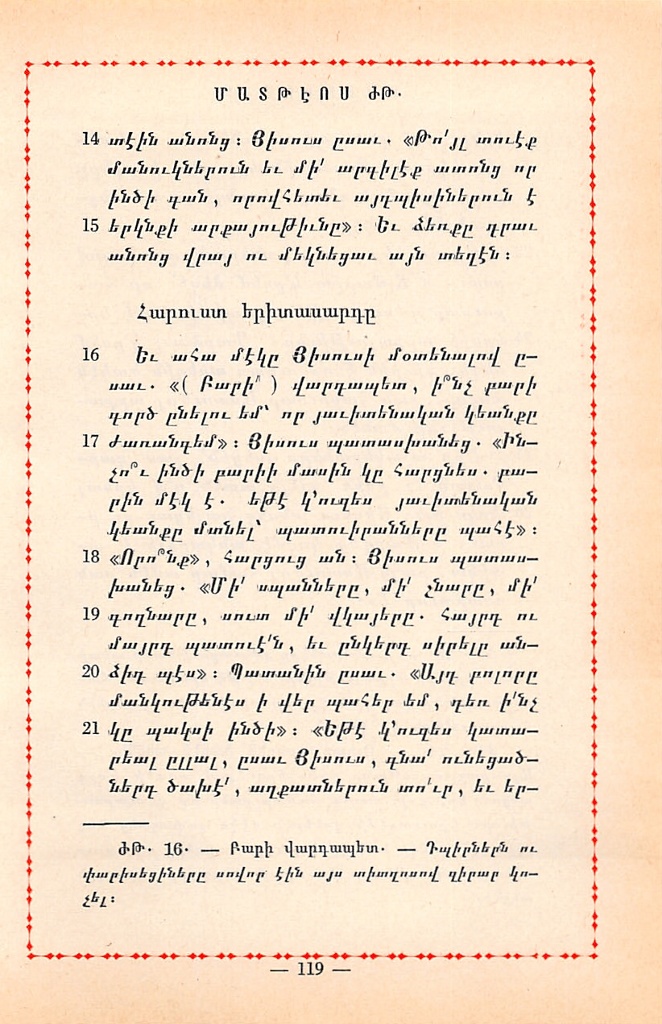 ՄԱՏԹԷՈՍ ԺԹ.
14 տէին անոնց։ Յիսուս ըսաւ. «Թո՛յլ տուէք
մանուկներուն եւ մի՛ արգիլէք ատոնց որ
ինծի գան, որովհետեւ այդպիսիներուն է
15 երկնքի արքայութիւնը»։ Եւ ձեռքը դրաւ
անոնց վրայ ու մեկնեցաւ այն տեղէն։
Հարուստ երիտասարդը
16 Եւ ահա մէկը Յիսուսի մօտենալով ը—
սաւ. «( Բարի՛ ) վարդապետ, ի՞նչ բարի
գործ ընելու եմ՝ որ յաւիտենական կեանքը
17 ժառանգեմ»։ Յիսուս պատասխանեց. «Ին—
չո՞ւ ինծի բարիի մասին կը հարցնես. բա—
րին մէկ է. եթէ կ՚ուզես յաւիտենական
կեանքը մտնել՝ պատուիրանները պահէ»։
18 «Որո՞նք», հարցուց ան։ Յիսուս պատաս—
խանեց. «Մի՛ սպանները, մի՛ շնարը, մի՛
19 գողնարը, սուտ մի՛ վկայերը. Հայրդ ու
մայրդ պատուէ՛ն, եւ ընկերդ սիրելը ան—
20 ձիդ պէս»։ Պատանին ըսաւ. «Այդ բոլորը
մանկութենէս ի վեր պահեր եմ, դեռ ի՛նչ
21 կը պակսի ինծի»։ «Եթէ կ՚ուզես կատա—
րեալ ըլլալ, ըսաւ Յիսուս, գնա՛ ունեցած—
ներդ ծախէ՛, աղքատներուն տո՛ւր, եւ եր—
ԺԹ. 16. — Բարի վարդապետ. — Դպիրներն ու
փարիսեցիները սովոր էին այս տիտղոսով զիրար կո—
չել։
— 119 —